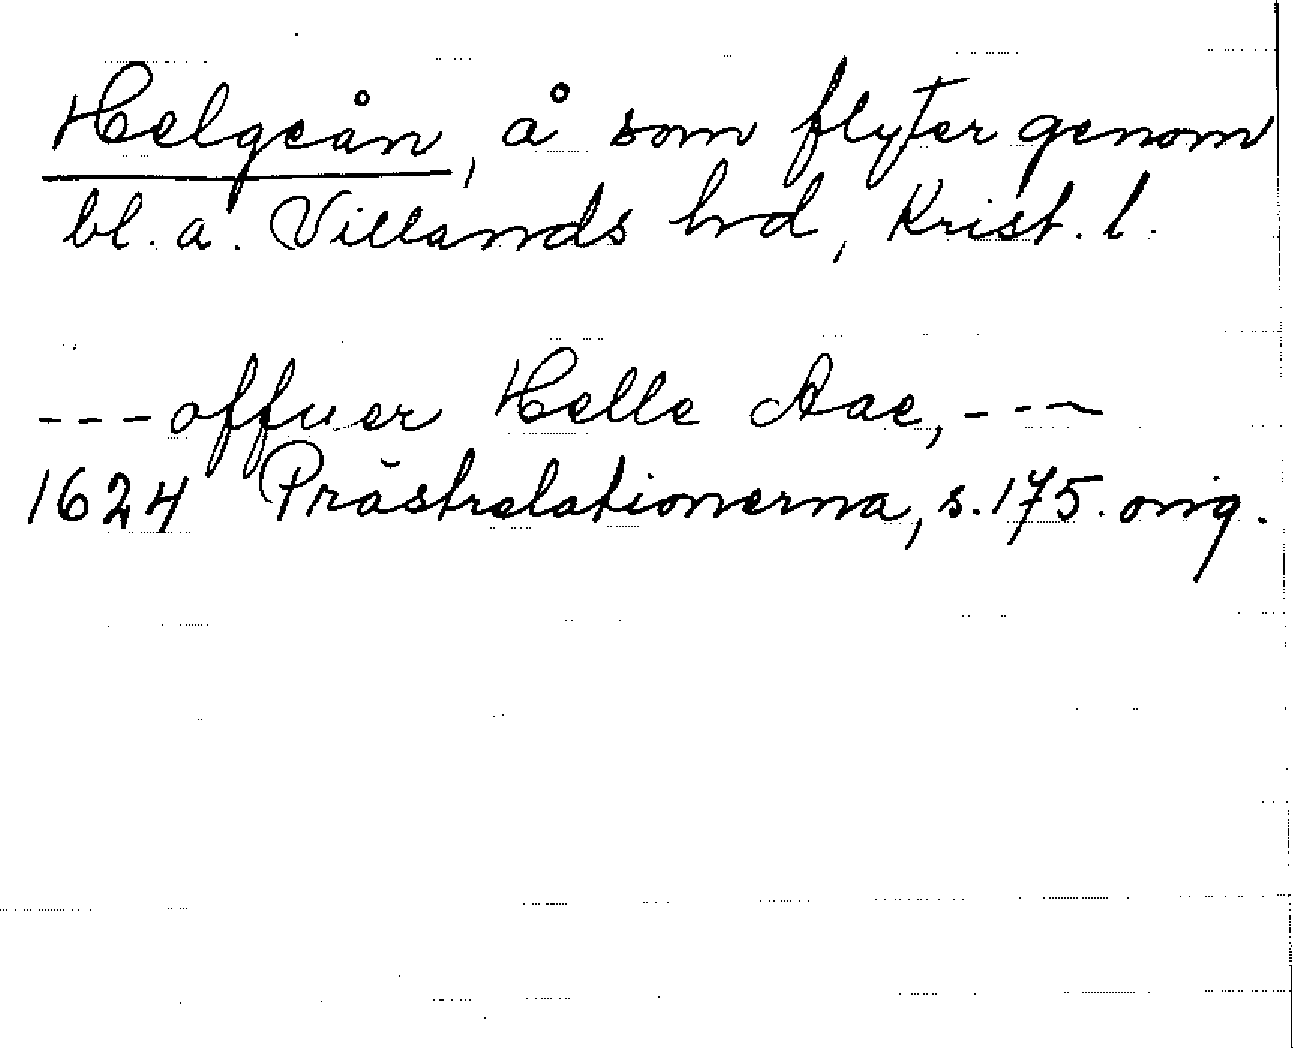 Helgeån, å som flyter genom
bl. a. Villands hd, Krist. l.
---offuer Helle Aae,---
1624 Prästrelationerna, s. 175. orig.